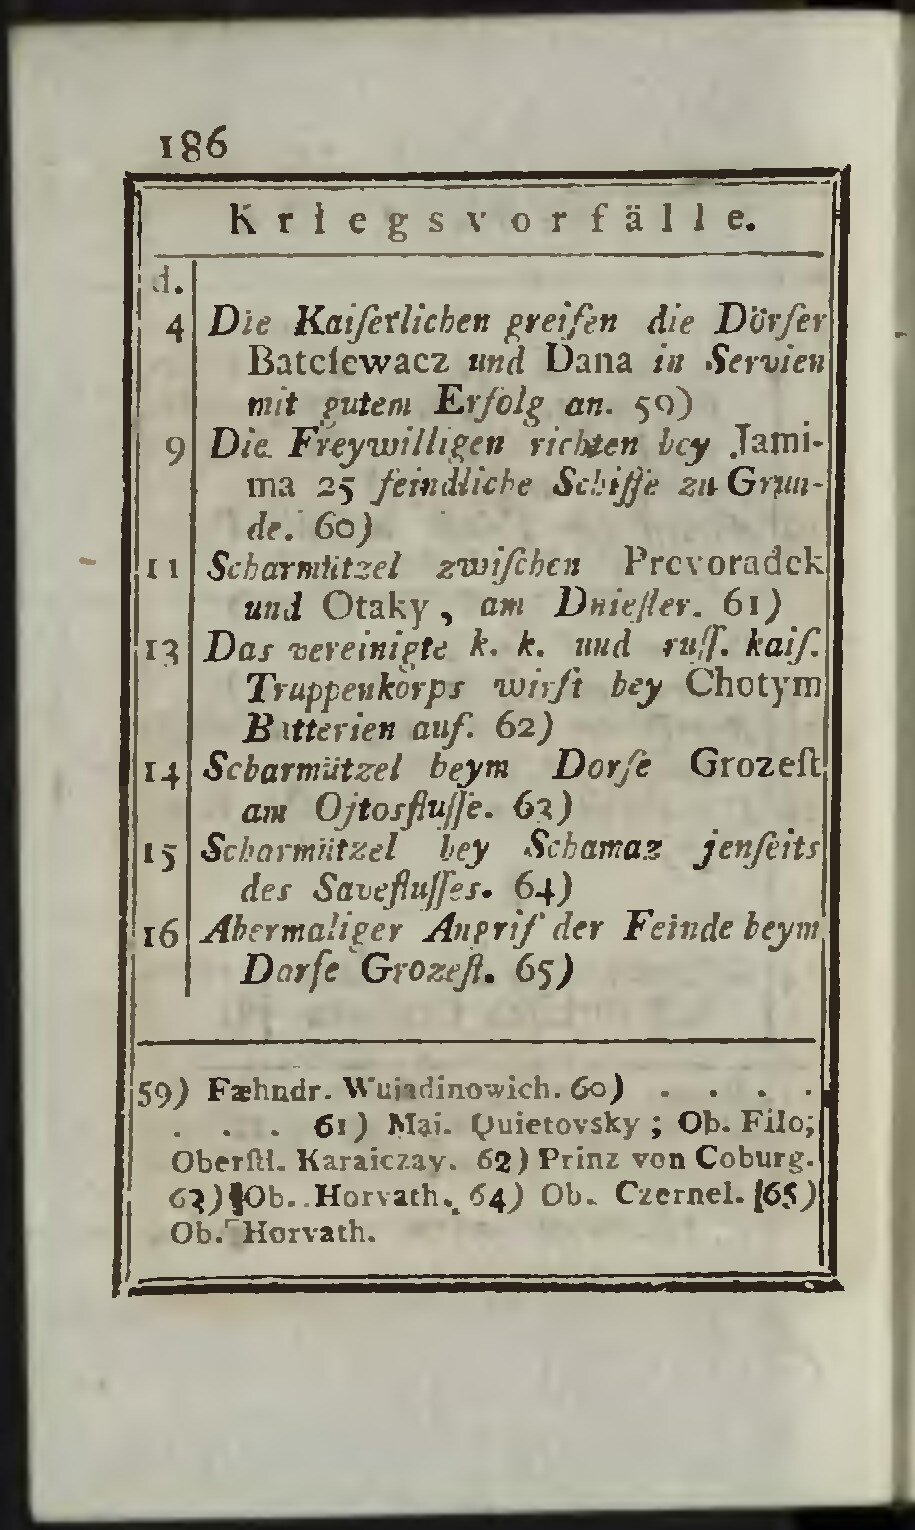 186
Kriegsvorfälle.
d.
4 Die Kaiſerlichen greifen die Dörfer
Batclewacz und Dana in Servien
mit gutem Erfolg an. 59)
9 Die Freywilligen richten bey Jami-
ma 25 feindliche Schiffe zu Grun-
de. 60)
11 Scharmützel zwiſchen Prevoradek
und Otaky, am Dnieſter. 61)
13 Das vereinigte k. k. und ruſſ. kaiſ.
Truppenkörps wirft bey Chotym
Batterien auf. 62)
14 Scharmützel beym Dorfe Grozeſt
am Ojtosfluſſe. 63)
15 Scharmützel bey Schamaz jenſeits
des Savefluſſes. 64)
16 Abermaliger Angrif der Feinde beym
Dorfe Grozeſt. 65)
59) Fæhndr. Wuiadinowich. 60) . . . .
. . . 61) Maj. Quietovsky; Ob. Filo;
Oberſtl. Karaiczay. 62) Prinz von Coburg.
63) Ob. Horvath. 64) Ob. Czernel. 65)
Ob. Horvath.